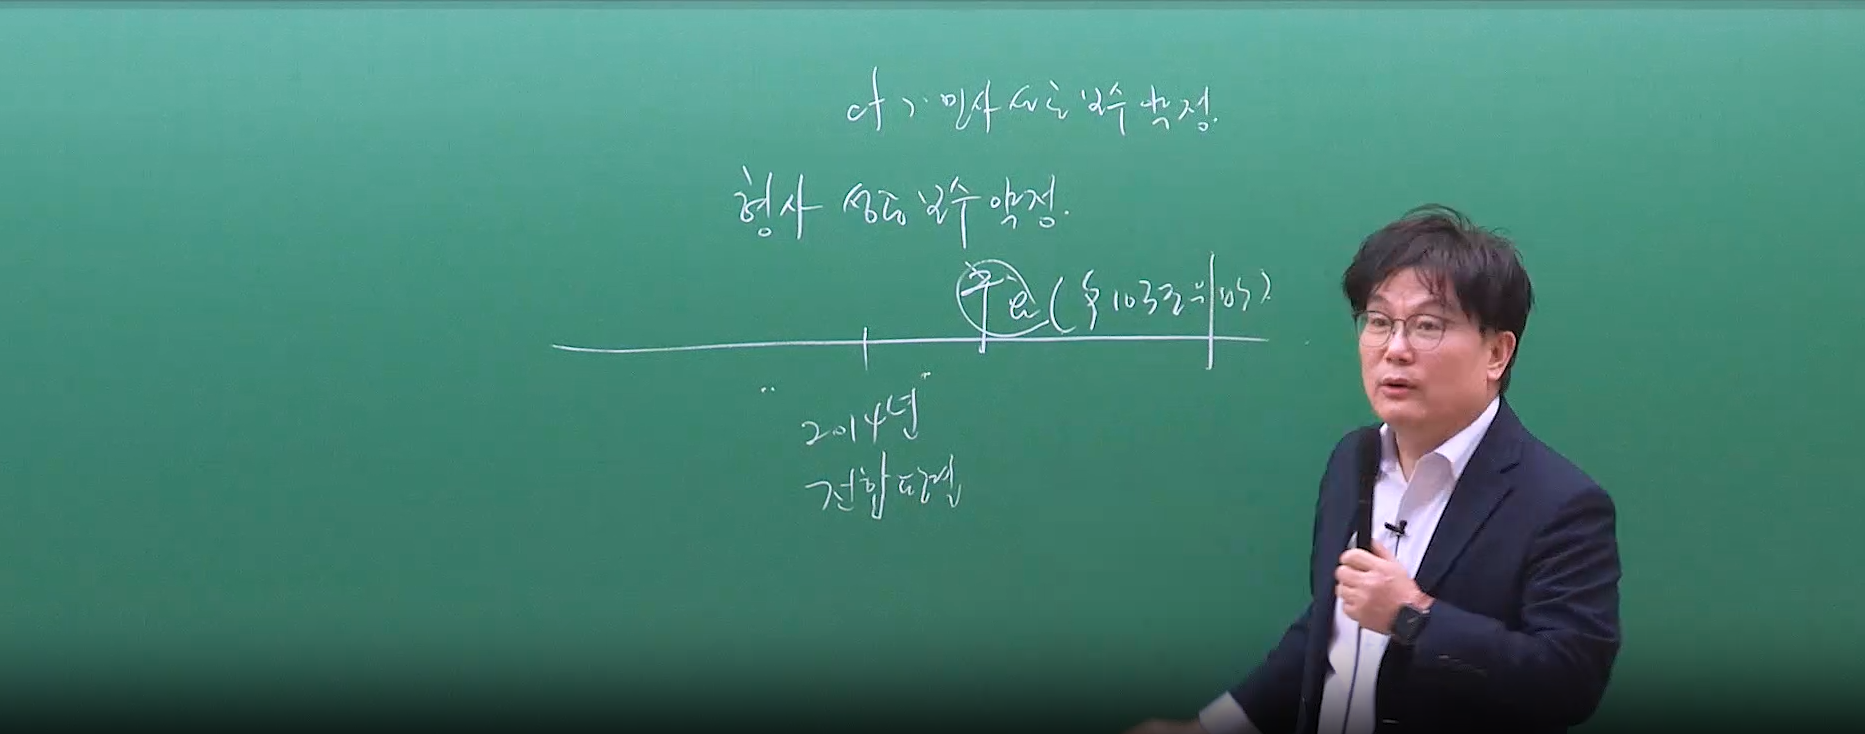 cf > 민사 성공 보수 약정.
형사 성공 보수 약정.
무효 (제103조 위반)
2014년
전합 판결